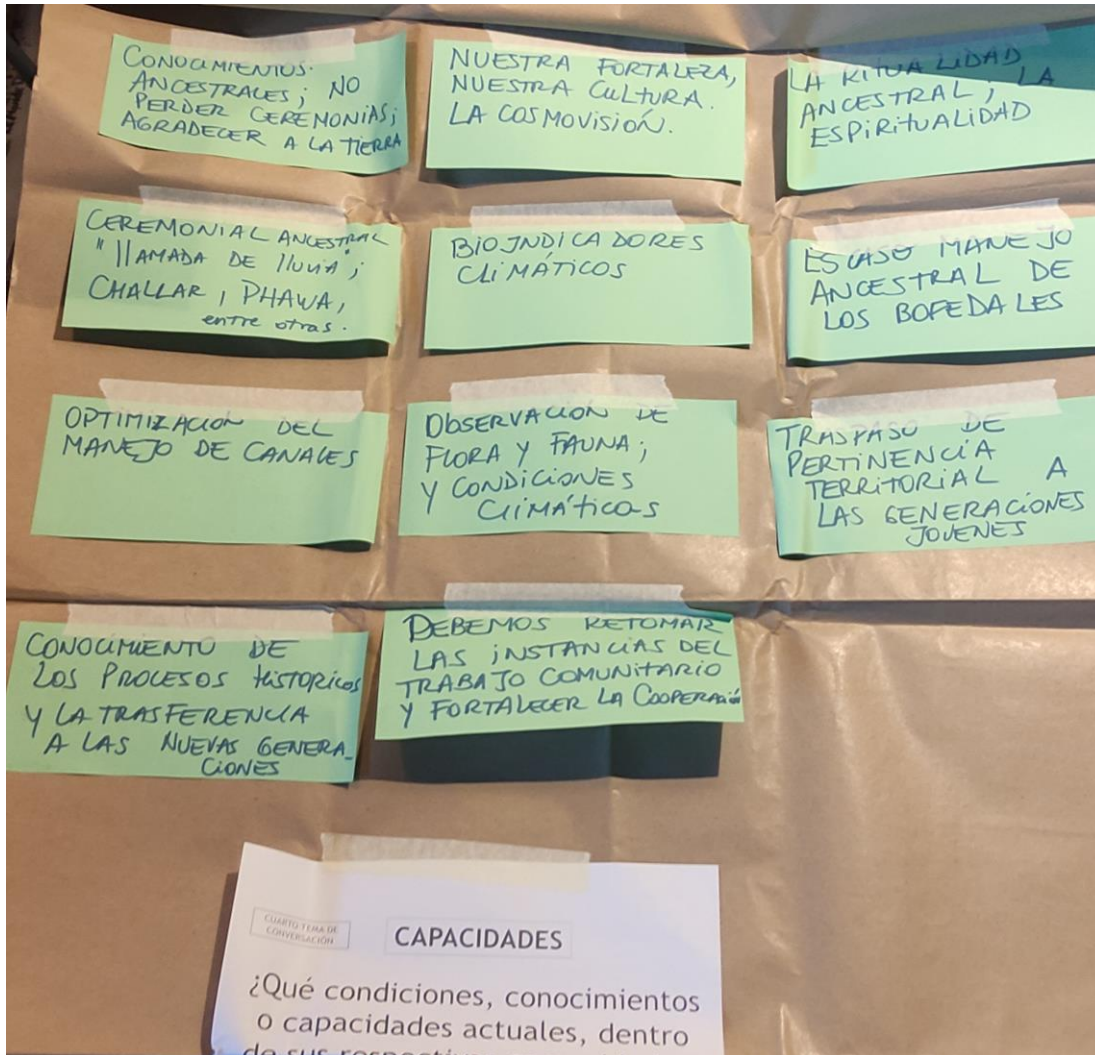 CONOCIMIENTOS.
ANCESTRALES; NO
PERDER CEREMONIAS;
AGRADECER A LA TIERRA
NUESTRA FORTALEZA,
NUESTRA CULTURA.
LA COSMOVISIÓN.
LA RITUALIDAD
ANCESTRAL, LA
ESPIRITUALIDAD
CEREMONIAL ANCESTRAL
"llAMADA DE lluvia";
CHALLAR, PHAWA,
entre otras.
BIOINDICADORES
CLIMÁTICOS
ESCASO MANEJO
ANCESTRAL DE
LOS BOFEDALES
OPTIMIZACIÓN DEL
MANEJO DE CANALES
OBSERVACIÓN DE
FLORA Y FAUNA;
Y CONDICIONES
CLIMÁTICAS
TRASPASO DE
PERTINENCIA
TERRITORIAL A
LAS GENERACIONES
JOVENES
CONOCIMIENTO DE
LOS PROCESOS HISTORICOS
Y LA TRASFERENCIA
A LAS NUEVAS GENERA-
CIONES
DEBEMOS RETOMAR
LAS INSTANCIAS DEL
TRABAJO COMUNITARIO
Y FORTALECER LA COOPERACIÓN
CUARTO TEMA DE
CONVERSACIÓN
CAPACIDADES
¿Qué condiciones, conocimientos
o capacidades actuales, dentro
de sus